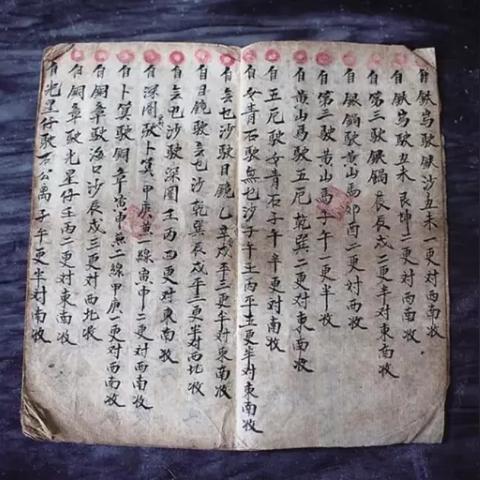 自鉄峙駛銀沙丑未一更对西南收
自鉄峙駛丑未艮坤二更对西南收
自第三駛銀鍋辰戌二更半对東南收
自銀鍋駛黄山馬卯酉二更对西收
自第三駛黄山馬子午一更半收
自黄山馬駛五厄乾巽二更对東南收
自五厄駛女青石子午半更对南收
自女青石駛無乜沙子午壬丙平三更半对東南收
自無乜沙駛目鏡乙辰戌平二更半对東南收
自目鏡駛無乜沙乾巽辰戌平三更半对西北收
自無乜沙駛深圈壬丙四更对東南收
自深圈駛卜箕甲庚一線寅申二更对西南收
自卜箕駛銅章寅申無二線甲庚一更对西南收
自銅章駛海口沙辰戌三更对西北收
自銅章駛光星仔壬丙二更对東南收
自光星仔駛石公离子午平更半对南收